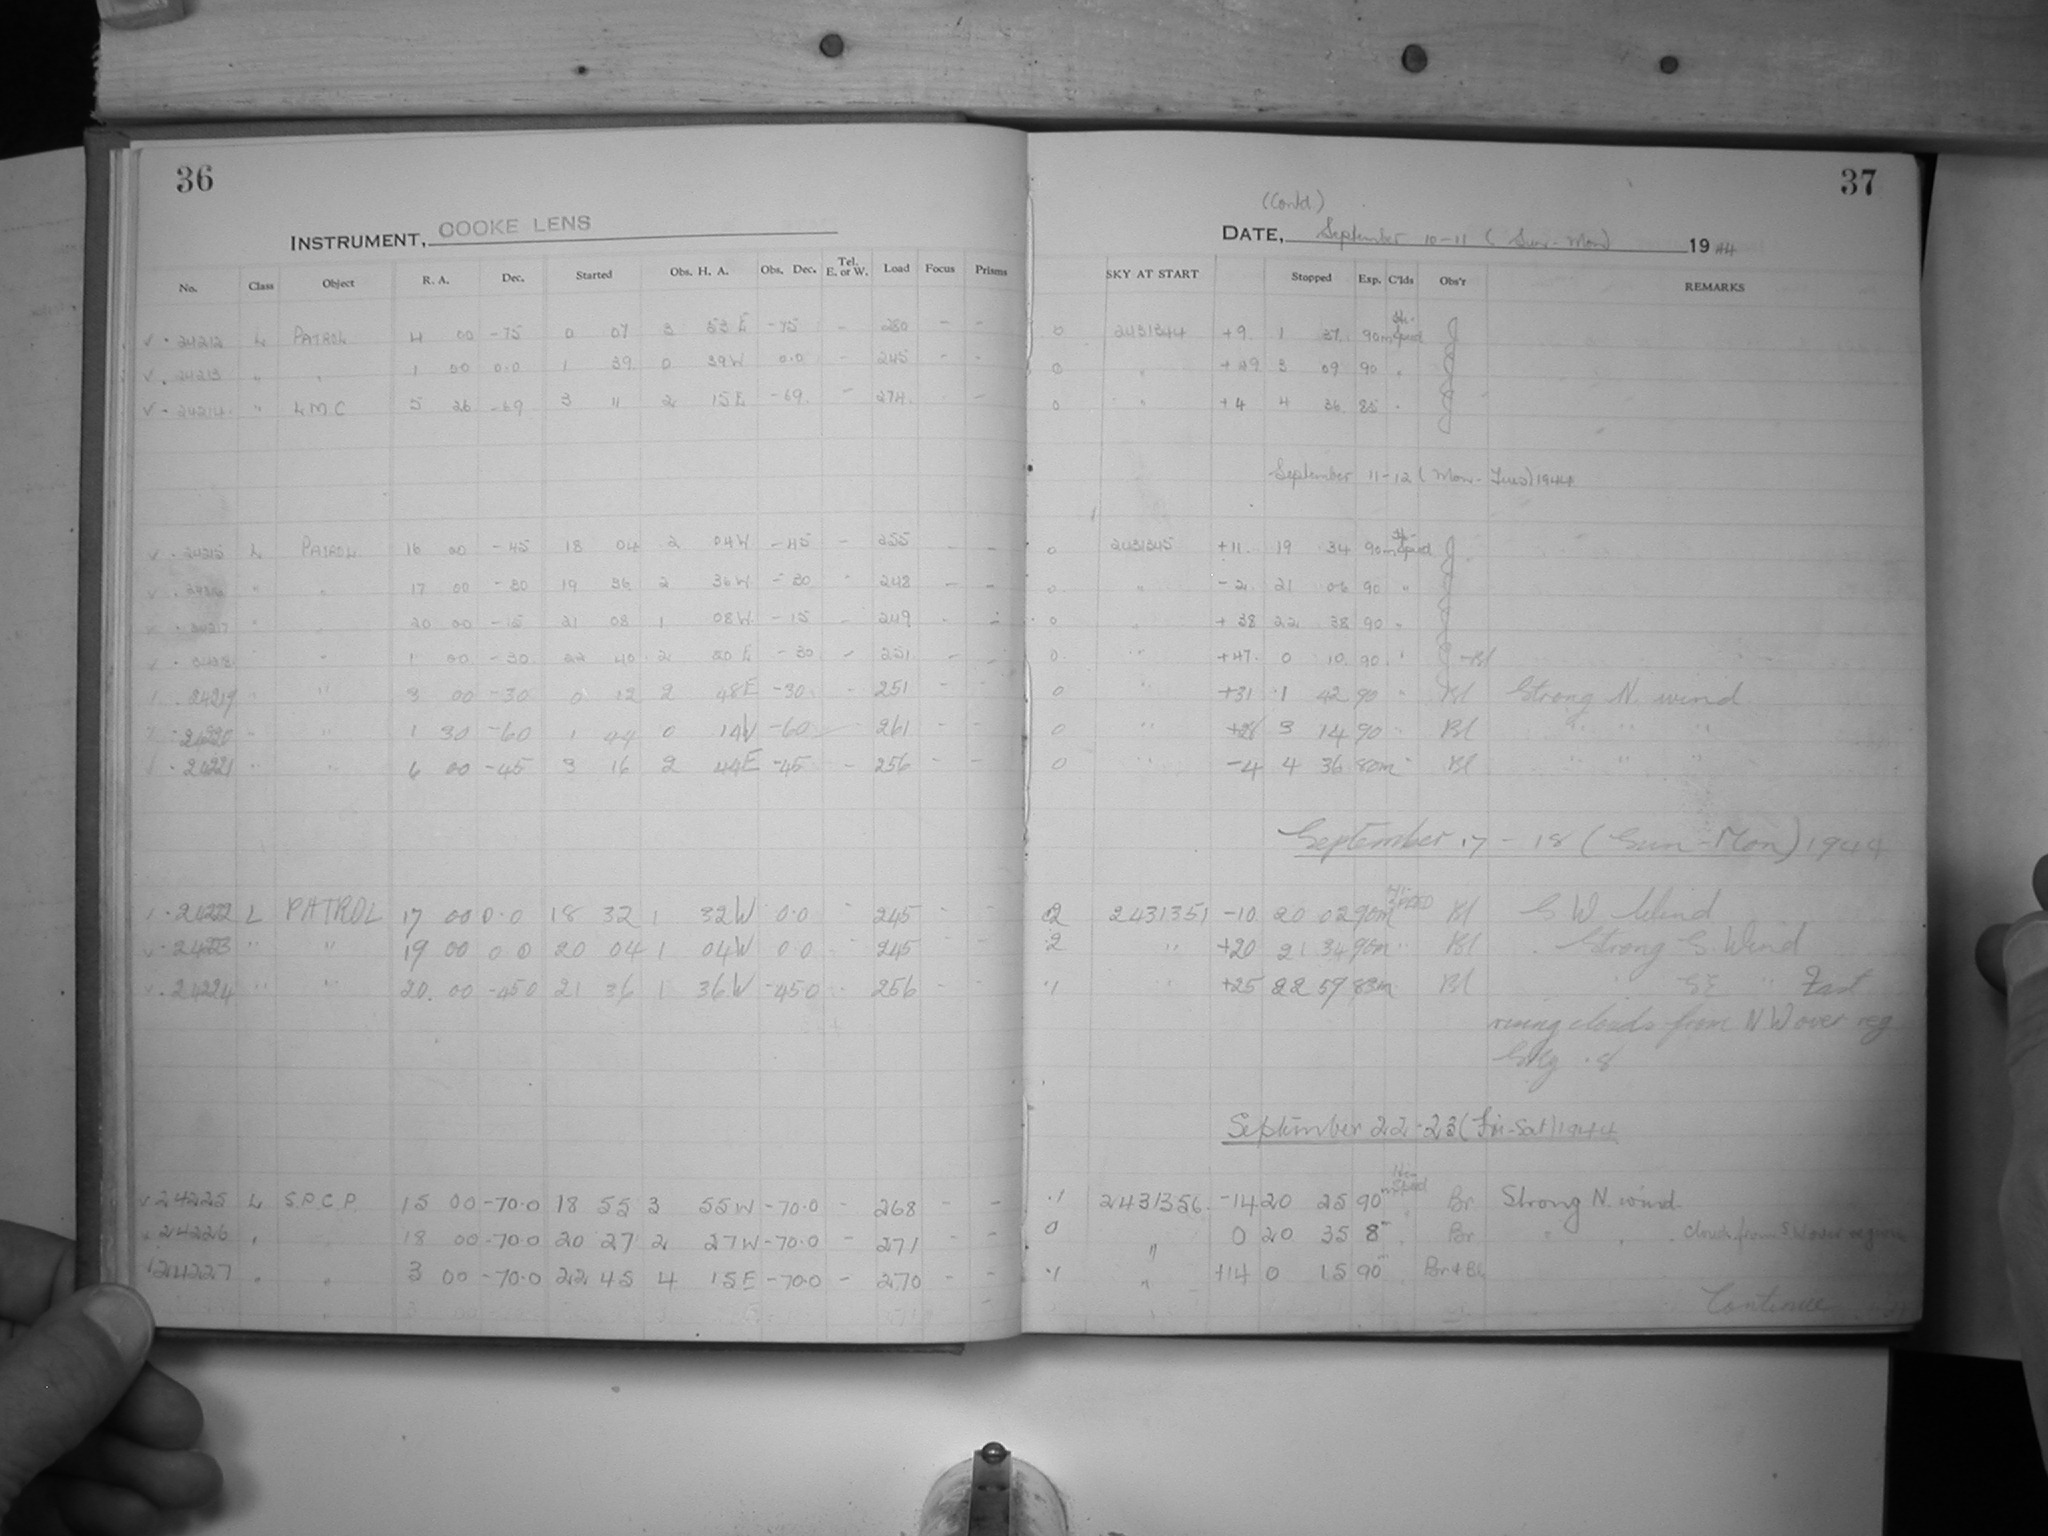 36
INSTRUMENT, COOKE LENS
No. Class Object R. A. Dec. Started Obs. H. A. Obs. Dec. Tel. E. or W. Load Focus Prisms
√ · 24212 L PATROL 4 00 -75 0 07 3 53 E -75 - 280 - -
√ · 24213 " " 1 00 0.0 1 39 0 39W 0.0 - 245 - -
√ · 24214 " L.M.C 5 26 -69 3 11 2 15E -69 - 274 -
√ · 24215 L PATROL 16 00 -45 18 04 2 04W -45 - 255 - -
√ · 24216 " " 17 00 -30 19 36 2 36W -30 - 248 - -
√ · 24217 " " 20 00 -15 21 08 1 08W -15 - 249 - -
√ · 24218 " " 1 00 -30 22 40 2 20E -30 - 251 - -
24219 " " 3 00 -30 0 12 2 48E -30 - 251 - -
· 24220 " " 1 30 -60 1 44 0 14W -60 - 261 - -
· 24221 " " 6 00 -45 3 16 2 44E -45 - 256 - -
· 24222 L PATROL 17 00 0.0 18 32 1 32W 0.0 - 245 - -
√ · 24223 " " 19 00 0.0 20 04 1 04W 0.0 - 245 - -
√ · 24224 " " 20 00 -45.0 21 36 1 36W -45.0 - 256 - -
√ 24225 L S.P.C.P. 15 00 -70.0 18 55 3 55W -70.0 - 268 - -
√ 24226 " " 18 00 -70.0 20 27 2 27W -70.0 - 271 - -
24227 " " 3 00 -70.0 22 45 4 15E -70.0 - 270 - -
37
(Contd)
DATE, September 10-11 (Sun-Mon) 1944
SKY AT START Stopped Exp. C'lds Obs'r REMARKS
0 2431344 +9 1 37 90m Hi-Speed J
0 " +29 3 09 90 " J
0 " +4 4 36 85 " J
September 11-12 (Mon-Tues) 1944
0 2431345 +11 19 34 90m Hi-Speed J
0 " -2 21 06 90 " J
0 " +38 22 38 90 " J
0 " +47 0 10 90 " J-Bl
0 " +31 1 42 90 " Bl Strong N. wind
0 " 3 14 90 " Bl " " "
0 " -4 4 36 80m " Bl " " "
September 17-18 (Sun-Mon) 1944
2 2431351 -10 20 02 90m HI-SPEED Bl S W Wind
.2 " +20 21 34 90m " Bl Strong S. Wind
.1 " +25 22 59 83m Bl " SE " Fast
rising clouds from NW over reg
Sky .8
September 22-23 (Fri-Sat) 1944
.1 2431356 -14 20 25 90m Hi-Speed Br Strong N. wind
0 " 0 20 35 8m " Br " " " clouds from SW over region
.1 " +14 0 15 90m " Br+Bl
Continue